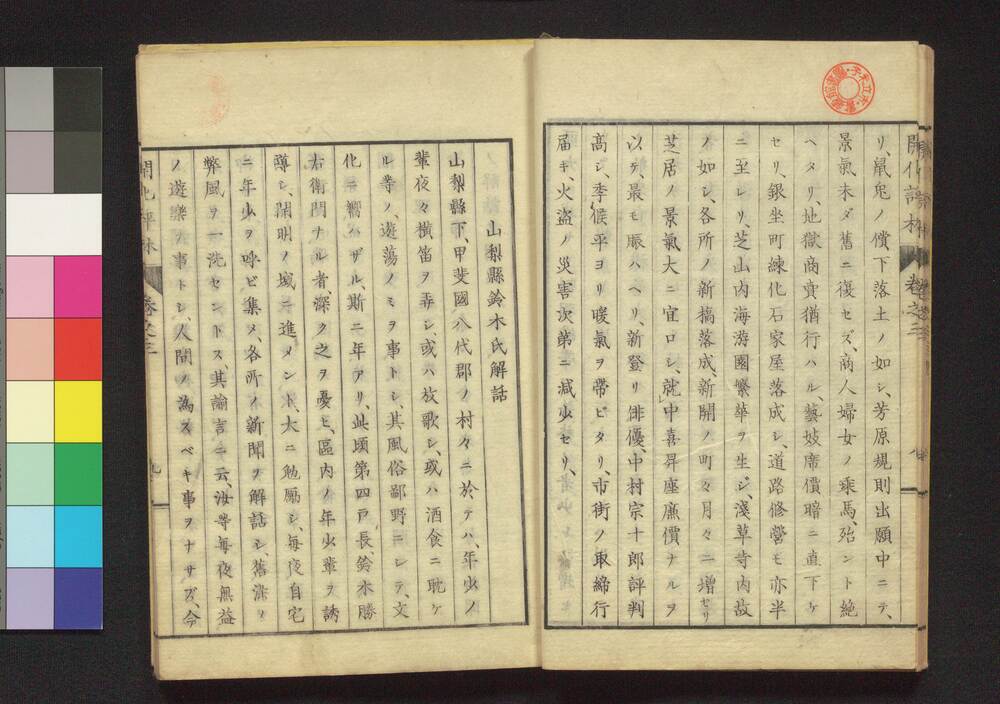 開化評林 卷之二
リ、鼠兎ノ償下落土ノ如シ、芳原規則出願中ニテ、
景氣未ダ舊ニ復セズ、商人婦女ノ乘馬、殆ント絶
ヘタリ、地獄商賣猶行ハル、藝妓席價暗ニ直下ケ
セリ、銀坐町練化石家屋落成シ、道路修營モ亦半
ニ至レリ、芝山内海游園繁華ヲ生ジ、淺草寺内故
ノ如シ、各所ノ新橋落成、新開ノ町々月々ニ増セリ
芝居ノ景氣大ニ宜ロシ、就中喜昇座廉價ナルヲ
以テ、最モ賑ハヘリ、新登リ俳優、中村宗十郎評判
高シ、季候平ヨリ暖氣ヲ帶ビタリ、市街ノ取締行
届キ、火盗ノ災害次第ニ減少セリ、
山梨縣鈴木氏解話
山梨縣下、甲斐國八代郡ノ村々ニ於テハ、年少ノ
輩夜々横笛ヲ弄シ、或ハ放歌シ、或ハ酒食ニ耽ケ
ル等ノ、遊蕩ノミヲ事トシ、其風俗鄙野ニシテ、文
化ニ嚮ハザル、斯ニ年アリ、此頃第四戸長、鈴木勝
右衛門ナル者、深ク之ヲ憂ヒ、區内ノ年少輩ヲ誘
導シ、開明ノ域ニ進メント、大ニ勉勵シ、毎夜自宅
ニ年少ヲ呼ビ集メ、各所ノ新聞ヲ解話シ、舊染ノ
弊風ヲ一洗セントス、其諭言ニ云、汝等毎夜無益
ノ遊樂ヲ事トシ、人間ノ為スベキ事ヲナサズ、今
開化評林 卷之二 九